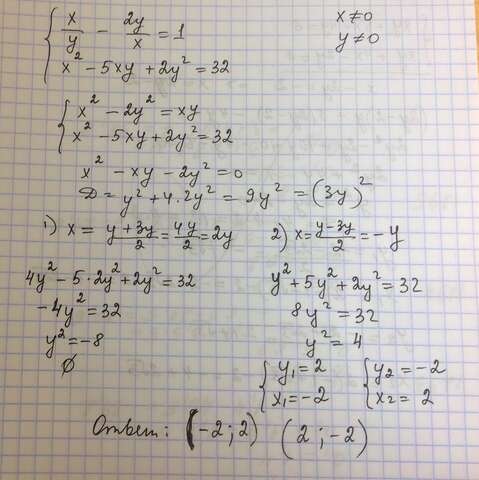 x/y - 2y/x = 1    x≠0
y≠0
x² - 5xy + 2y² = 32
x² - 2y² = xy
x² - 5xy + 2y² = 32
x² - xy - 2y² = 0
D = y² + 4·2y² = 9y² = (3y)²
1) x = (y+3y)/2 = 4y/2 = 2y    2) x = (y-3y)/2 = -y
4y² - 5·2y² + 2y² = 32    y² + 5y² + 2y² = 32
-4y² = 32    8y² = 32
y² = -8    y² = 4
∅    y₁ = 2    y₂ = -2
x₁ = -2    x₂ = 2
Ответ: (-2; 2) (2; -2)